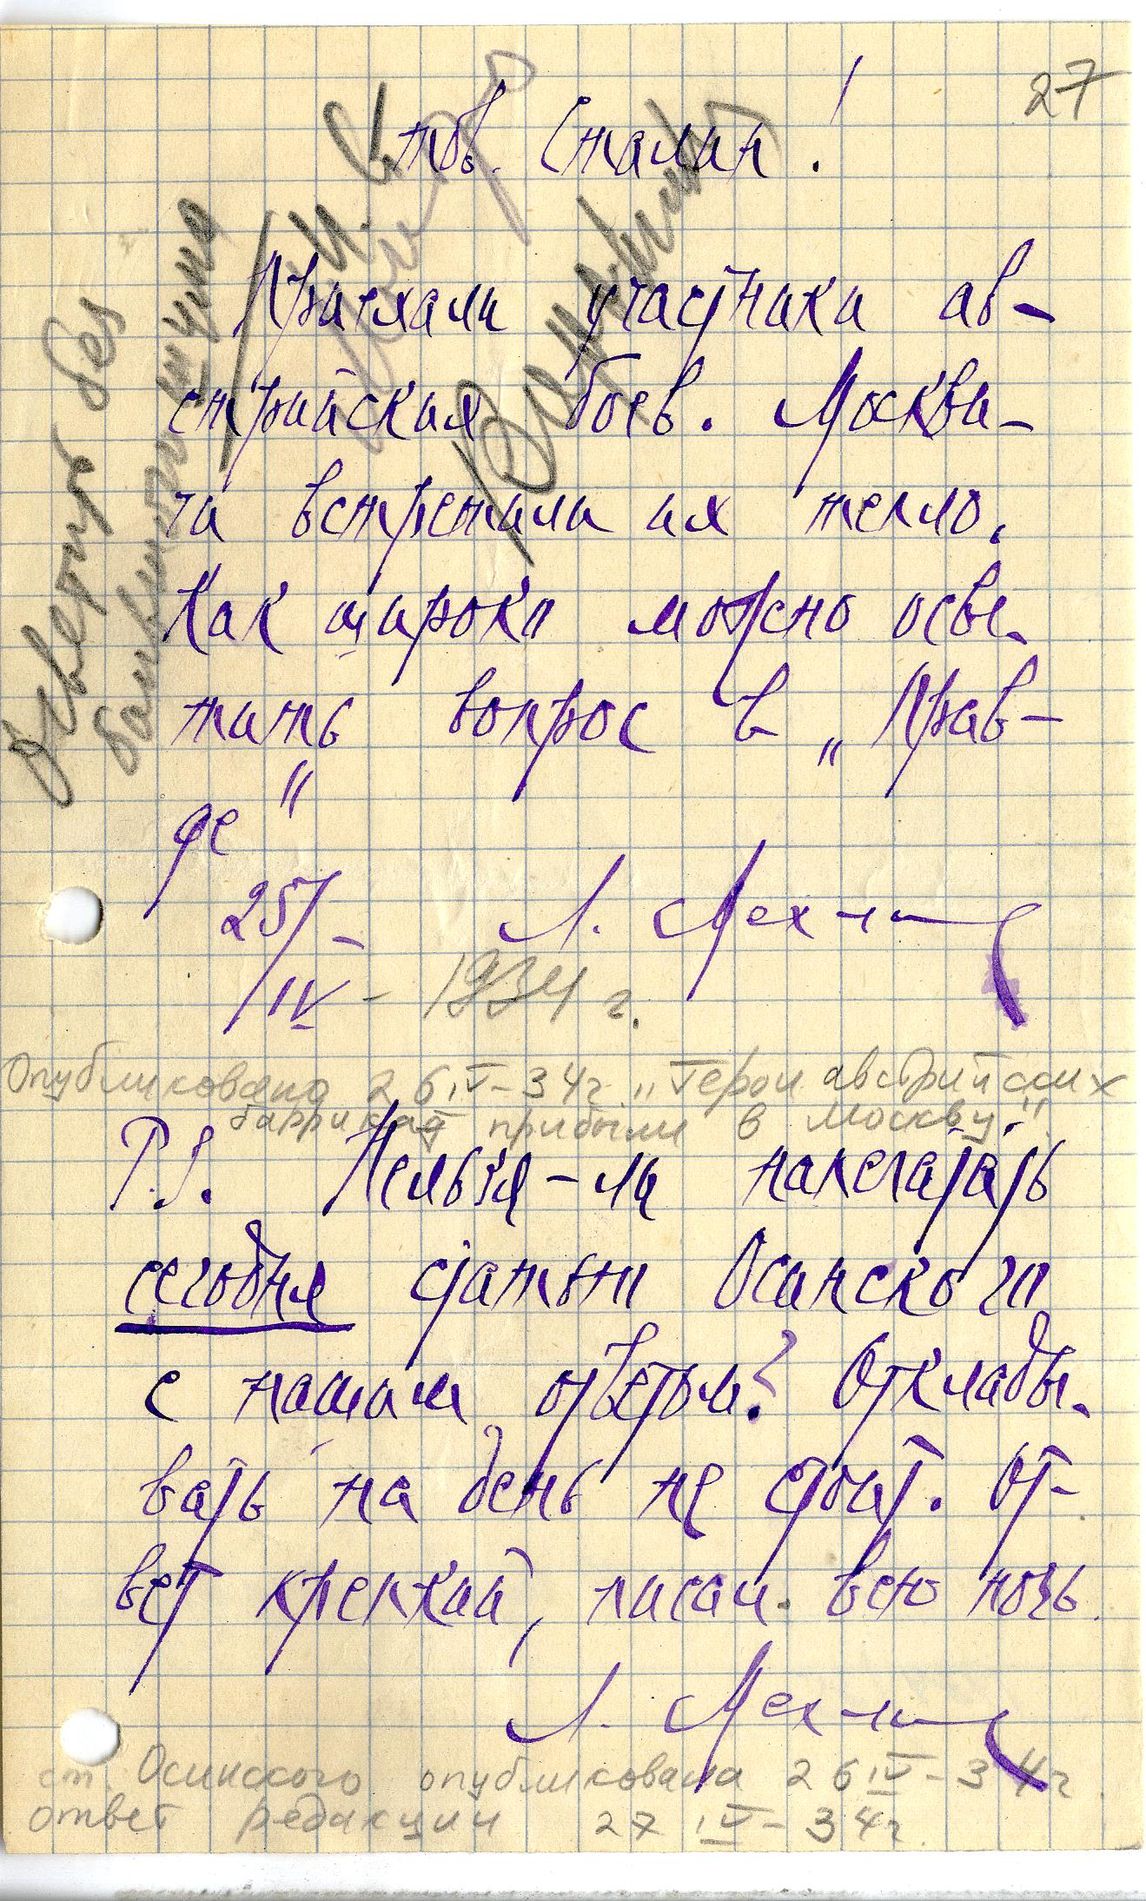 27
тов. Сталин!
Приехали участники ав-
стрийских боев. Москви-
чи встретили их тепло.
Как широко можно осве-
тить вопрос в „Прав-
де"
25/
/IV - 1934 г.
Л. Мехлис
Осветить без
большого шума
Опубликовано 26.IV-34г. „Герои австрийских
баррикад прибыли в Москву"
P.S. Нельзя-ли напечатать
сегодня статью Осинского
с нашим ответом? Отклады-
вать на день не стоит. От-
вет крепкий, писали всю ночь.
Л. Мехлис
ст. Осинского опубликована 26 IV-34г.
ответ редакции 27 IV-34г.